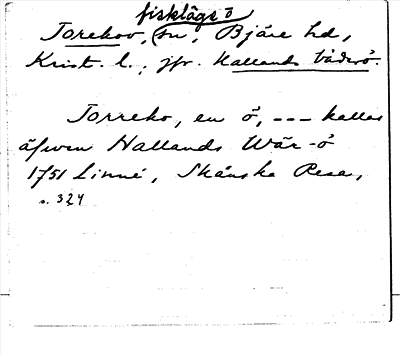 fiskläge
Torekov, sn, Bjäre hd,
Krist. l., jfr. Hallands Väderö.
Torreko, en ö, --- kallas
äfwen Hallands Wär-ö
1751 Linné, Skånska Resa,
s. 324